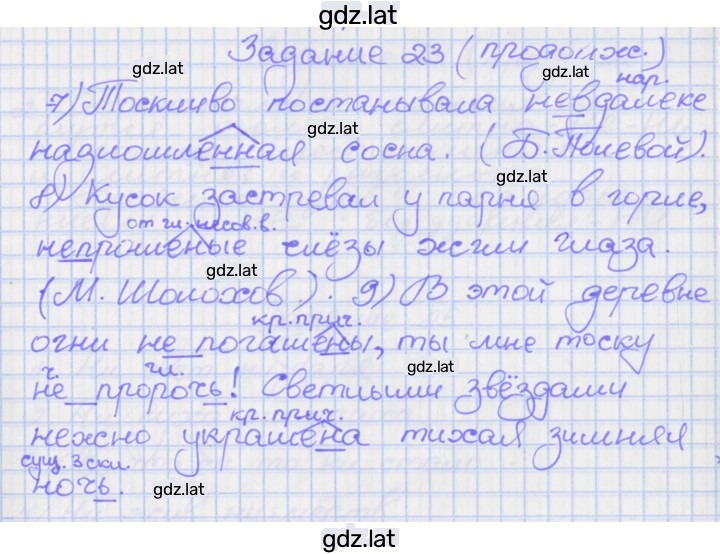 gdz.lat
Задание 23 (продолж.)
gdz.lat
gdz.lat
нар.
7) Тоскливо постанывала невдалеке
gdz.lat
надломленная сосна. (Б. Полевой).
8) Кусок застревал у парня в горле,
от гл. несов. в.
непрошеные слёзы жгли глаза.
gdz.lat
(М. Шолохов). 9) В этой деревне
кр. прич.
огни не погашены, ты мне тоску
ч. гл. gdz.lat
не пророчь! Светлыми звёздами
кр. прич.
нежно украшена тихая зимняя
сущ. 3 скл.
ночь.
gdz.lat
gdz.lat